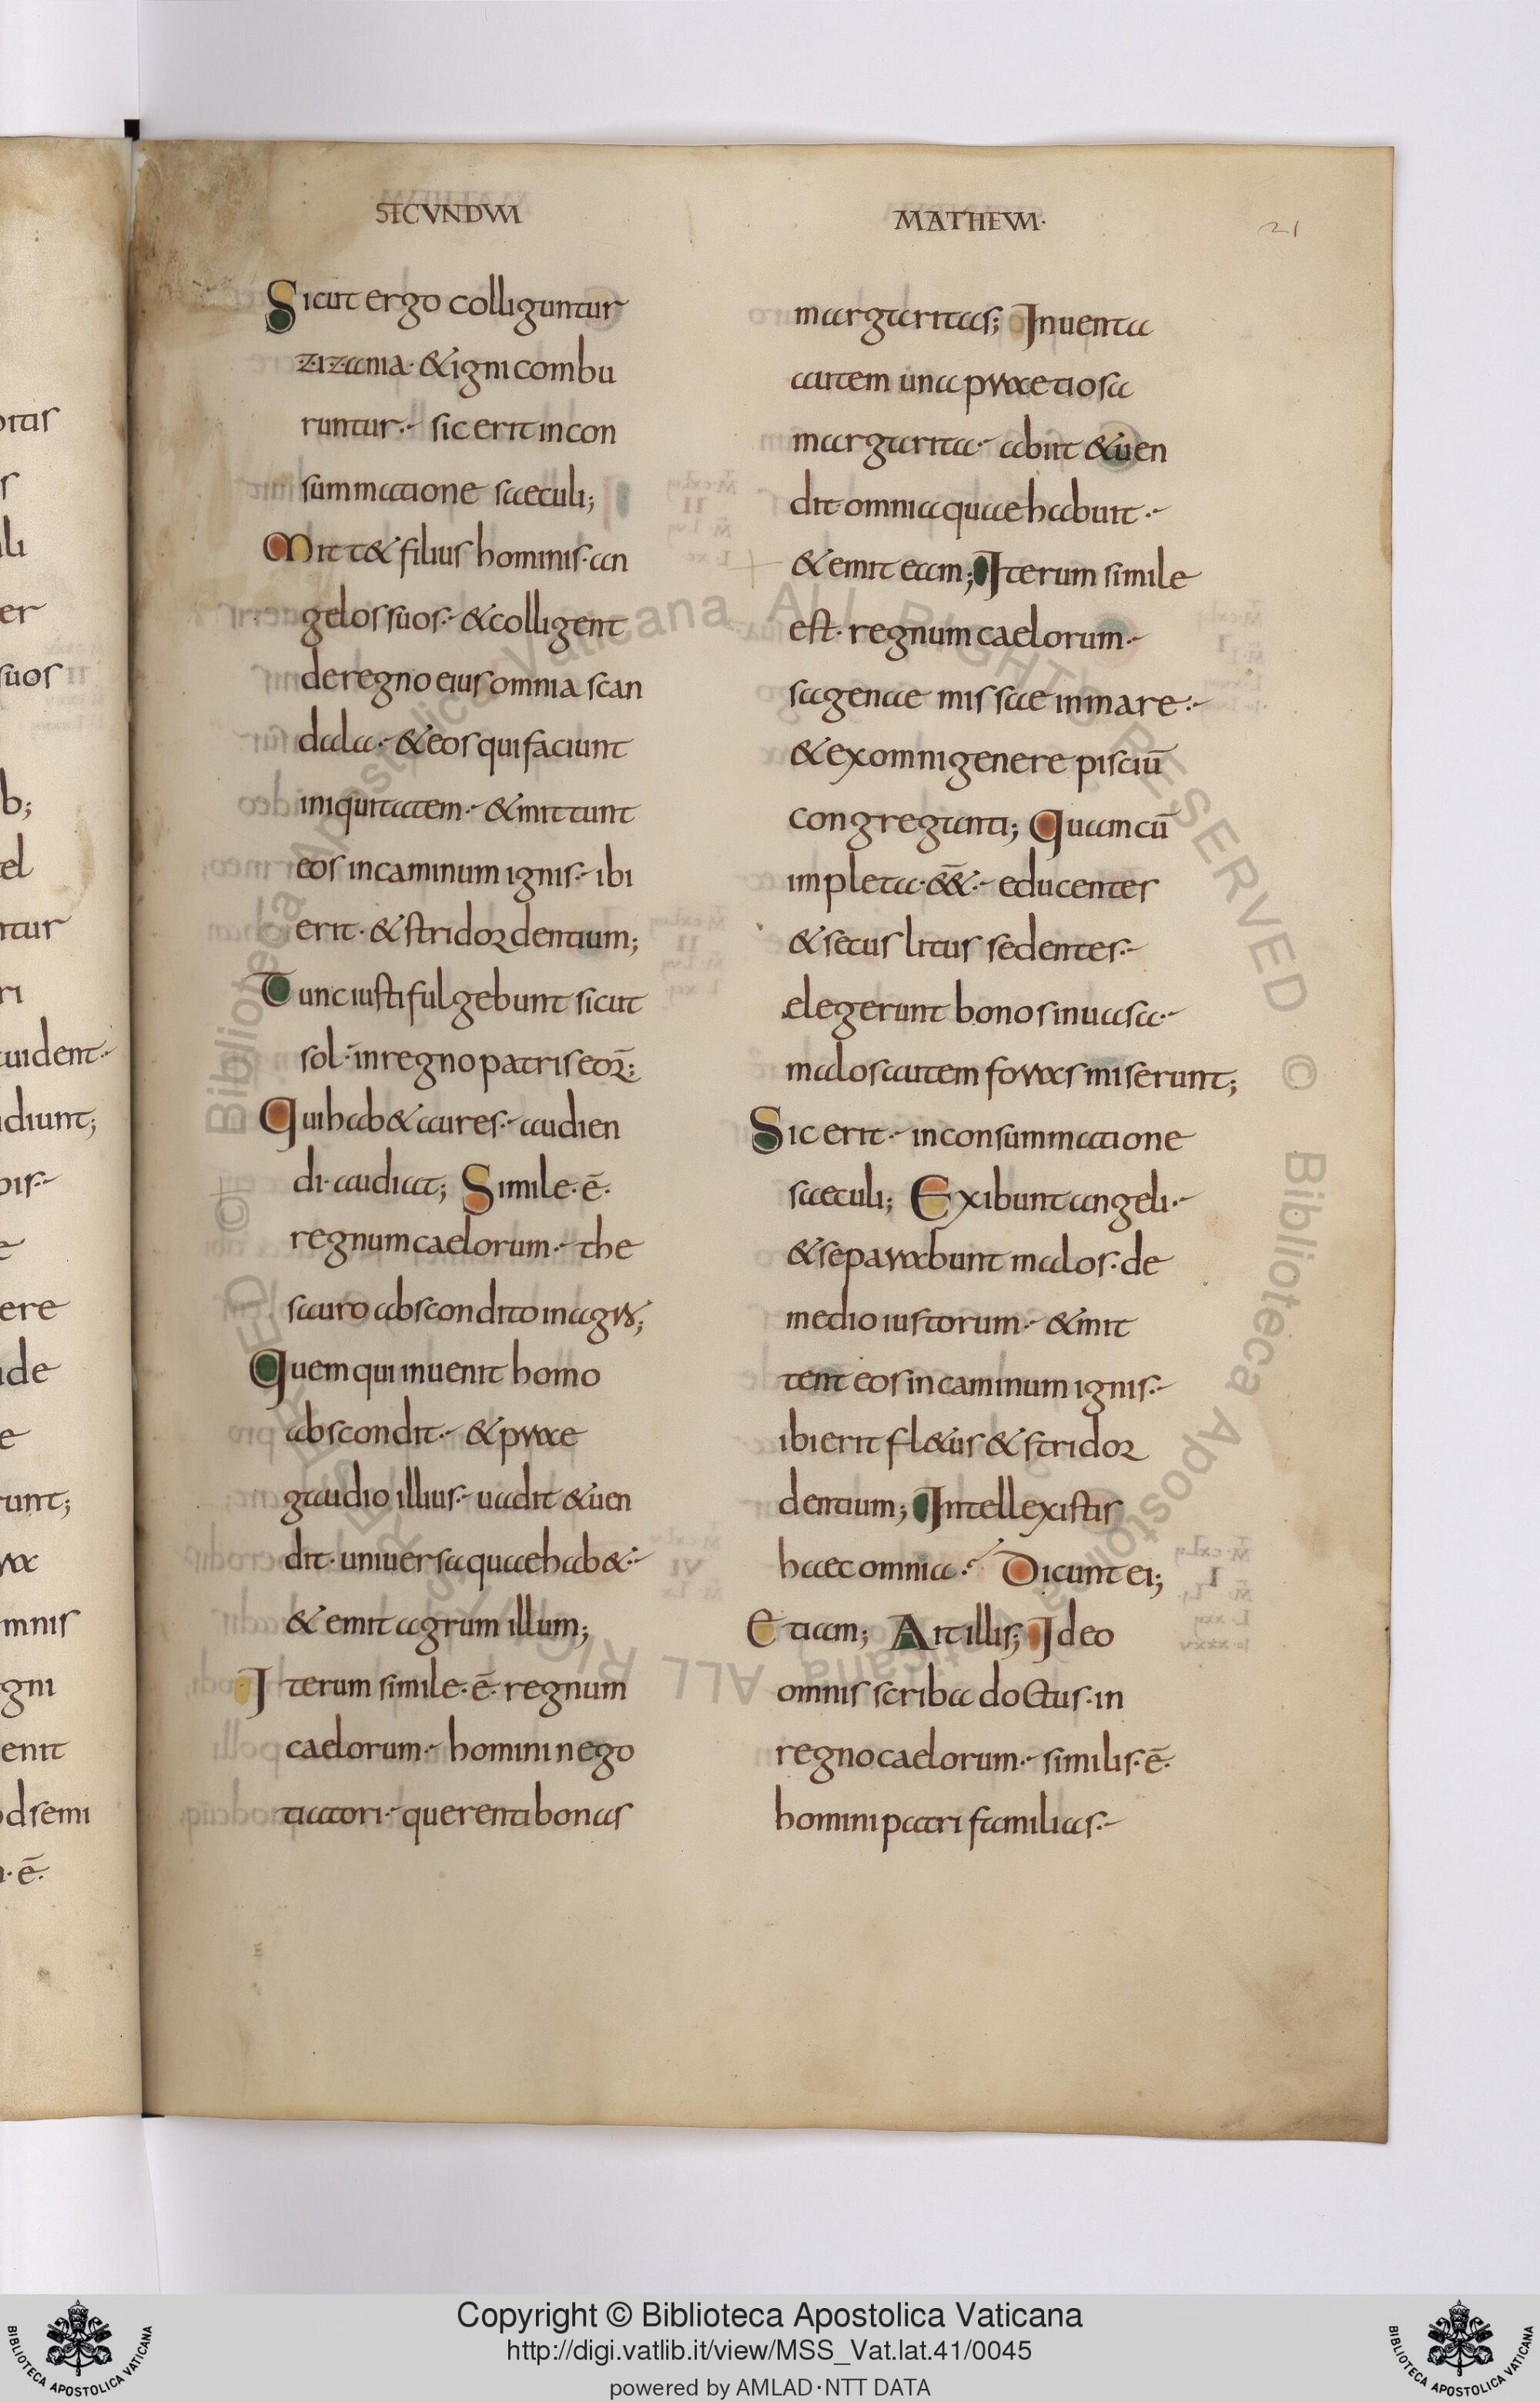 SECVNDVM
Sicut ergo colliguntur
zizania· & igni combu
runtur·- sic erit in con
summatione saeculi;
Mitt& filius hominis· an
gelos suos·- & colligent
de regno eius omnia scan
dala·- & eos qui faciunt
iniquitatem·- & mittunt
eos in caminum ignis·- ibi
erit· & stridor dentium;
Tunc iusti fulgebunt sicut
sol· in regno patris eoꝝ;
Qui hab& aures·- audien
di· audiat; Simile· ē·
regnum caelorum·- the
sauro abscondito in agro;
Quem qui inuenit homo
abscondit·- & prae
gaudio illius·- uadit & uen
dit· uniuersa quae hab&·-
& emit agrum illum;
Iterum simile· ē· regnum
caelorum·- homini nego
tiatori·- querenti bonas
MATHEVM·
21
margaritas; Inuenta
autem una praetiosa
margarita·- abiit & uen
dit omnia quae habuit·-
& emit eam; Iterum simile
est· regnum caelorum·-
sagenae missae in mare·-
& ex omni genere pisciū
congreganti; Quam cū
impleta· ēē·- educentes
& secus litus sedentes·-
elegerunt bonos in uasa·-
malos autem foras miserunt;
Sic erit·- in consummatione
saeculi; Exibunt angeli·-
& separabunt malos· de
medio iustorum·- & mit
tent eos in caminum ignis·-
ibi erit fl&us & stridor
dentium; Intellexistis
haec omnia·- Dicunt ei;
Etiam; Ait illis; Ideo
omnis scriba doctus· in
regno caelorum·- similis· ē·
homini patri familias·-
Copyright © Biblioteca Apostolica Vaticana
http://digi.vatlib.it/view/MSS_Vat.lat.41/0045
powered by AMLAD·NTT DATA